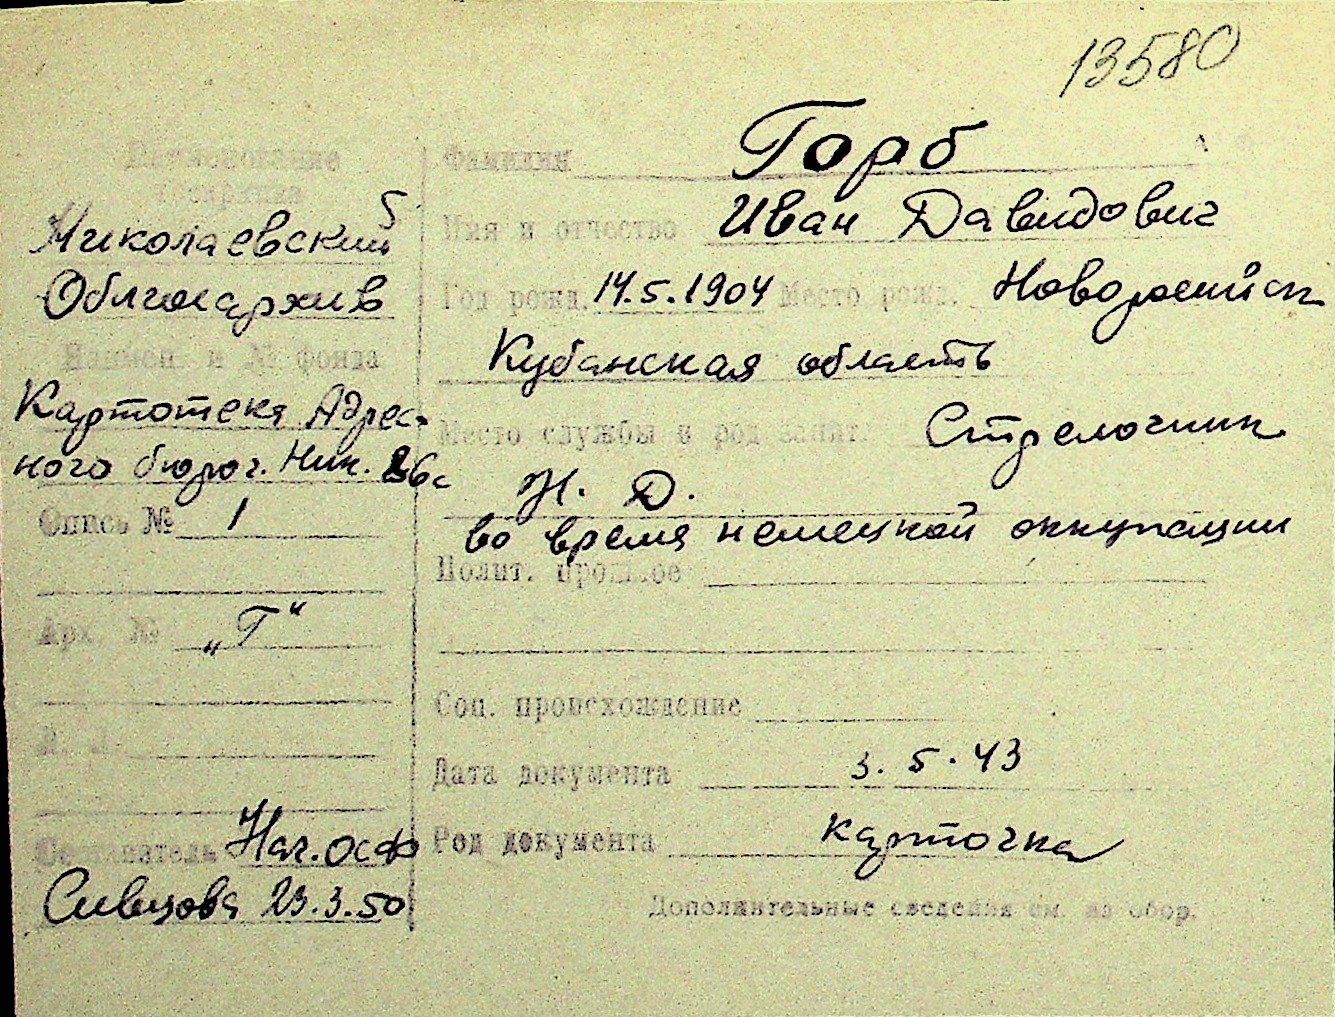 13580
Наименование
Фамилия Горб
Николаевский
Имя и отчество Иван Давидович
Облгосархив
Год рожд. 14.5.1904 Место рожд. Новороссийск
Наимен. и № фонда
Кубанская область
Картотека Адрес-
Место службы и род занят. Стрелочник
ного бюро г. Ник.
Н. Д.
Опись № 1
во время немецкой оккупации
Полит. прошлое
Арх. № „Г“
Соц. происхождение
Дата документа 3.5.43
Составитель Нач. ОСФ
Род документа карточка
Сивцова 23.3.50
Дополнительные сведения см. на обор.